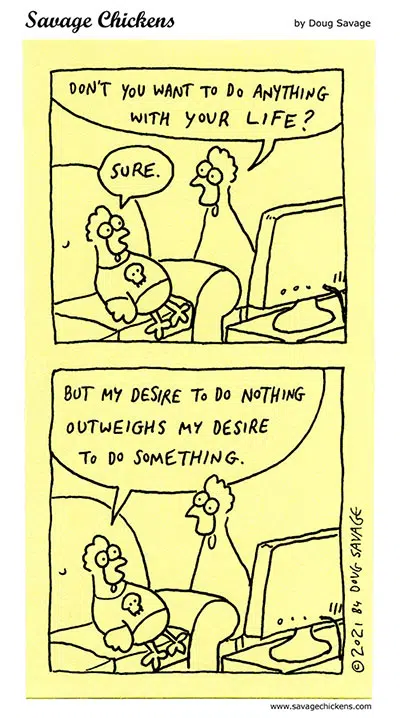 Savage Chickens
by Doug Savage
DON'T YOU WANT TO DO ANYTHING
WITH YOUR LIFE?
SURE.
BUT MY DESIRE TO DO NOTHING
OUTWEIGHS MY DESIRE
TO DO SOMETHING.
© 2021 BY DOUG SAVAGE
www.savagechickens.com